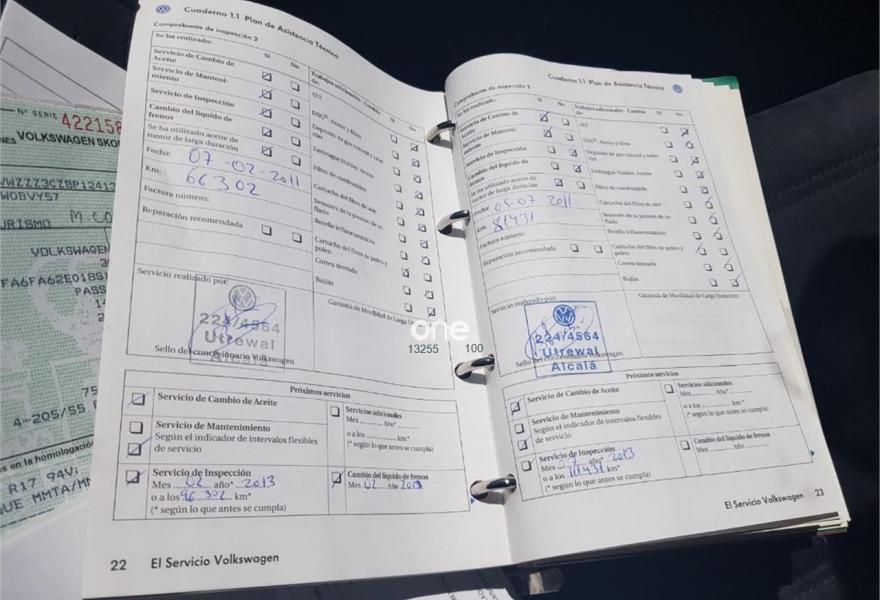 Nº SERIE 422158
VOLKSWAGEN SKO
WOBVY57
URISMO M.CO
VOLKSWAGEN
PASS
4-205/55
s en la homologación
R17 94V;
Cuaderno 1.1 Plan de Asistencia Técnica
Comprobante de inspección 2
Se ha realizado: Sí No
Servicio de Cambio de
Aceite
Servicio de Manteni-
miento
Servicio de Inspección
Cambio del líquido de
frenos
Se ha utilizado aceite de
motor de larga duración
Fecha: 07-02-2011
Km: 66302
Factura número:
Reparación recomendada
Trabajos adicionales - Cambio
de: Sí No
ATF
DSG®: Aceite y filtro
Depósito de gas natural y tube-
rías
Embrague Haldex: Aceite
Filtro de combustible
Cartucho del filtro de aire
Sensores de la presión de in-
flado
Botella inflaneumáticos
Cartucho del filtro de polvo y
polen
Correa dentada
Bujías
Garantía de Movilidad de Larga
Servicio realizado por:
224/4564
Utrewal
Alcalá
Sello del concesionario Volkswagen
Próximos servicios
Servicio de Cambio de Aceite
Servicio de Mantenimiento
Según el indicador de intervalos flexibles
de servicio
Servicio de Inspección
Mes 02 año* 2013
o a los 96.302 km*
(* según lo que antes se cumpla)
Servicios adicionales
Mes ........ Año* ........
o a los ........ km.*
(* según lo que antes se cumpla)
Cambio del líquido de frenos
Mes 02 Año 2013
22 El Servicio Volkswagen
one
13255 100
Cuaderno 1.1 Plan de Asistencia Técnica
Comprobante de inspección 3
Se ha realizado: Sí No
Servicio de Cambio de
Aceite
Servicio de Manteni-
miento
Servicio de Inspección
Cambio del líquido de
frenos
Se ha utilizado aceite de
motor de larga duración
Fecha: 05-07 2011
Km: 81431
Factura número:
Reparación recomendada
Trabajos adicionales - Cambio
de: Sí No
ATF
DSG®: Aceite y filtro
Depósito de gas natural y tube-
rías
Embrague Haldex: Aceite
Filtro de combustible
Cartucho del filtro de aire
Sensores de la presión de in-
flado
Botella inflaneumáticos
Cartucho del filtro de polvo y
polen
Correa dentada
Bujías
Garantía de Movilidad de Larga Duración:
Servicio realizado por:
224/4564
Utrewal
Alcalá
Sello del concesionario Volkswagen
Próximos servicios
Servicio de Cambio de Aceite
Servicio de Mantenimiento
Según el indicador de intervalos flexibles
de servicio
Servicio de Inspección
Mes 07 año* 2013
o a los 111431 km*
(* según lo que antes se cumpla)
Servicios adicionales
Mes ........ Año* ........
o a los ........ km.*
(* según lo que antes se cumpla)
Cambio del líquido de frenos
Mes ........ Año ........
El Servicio Volkswagen 23